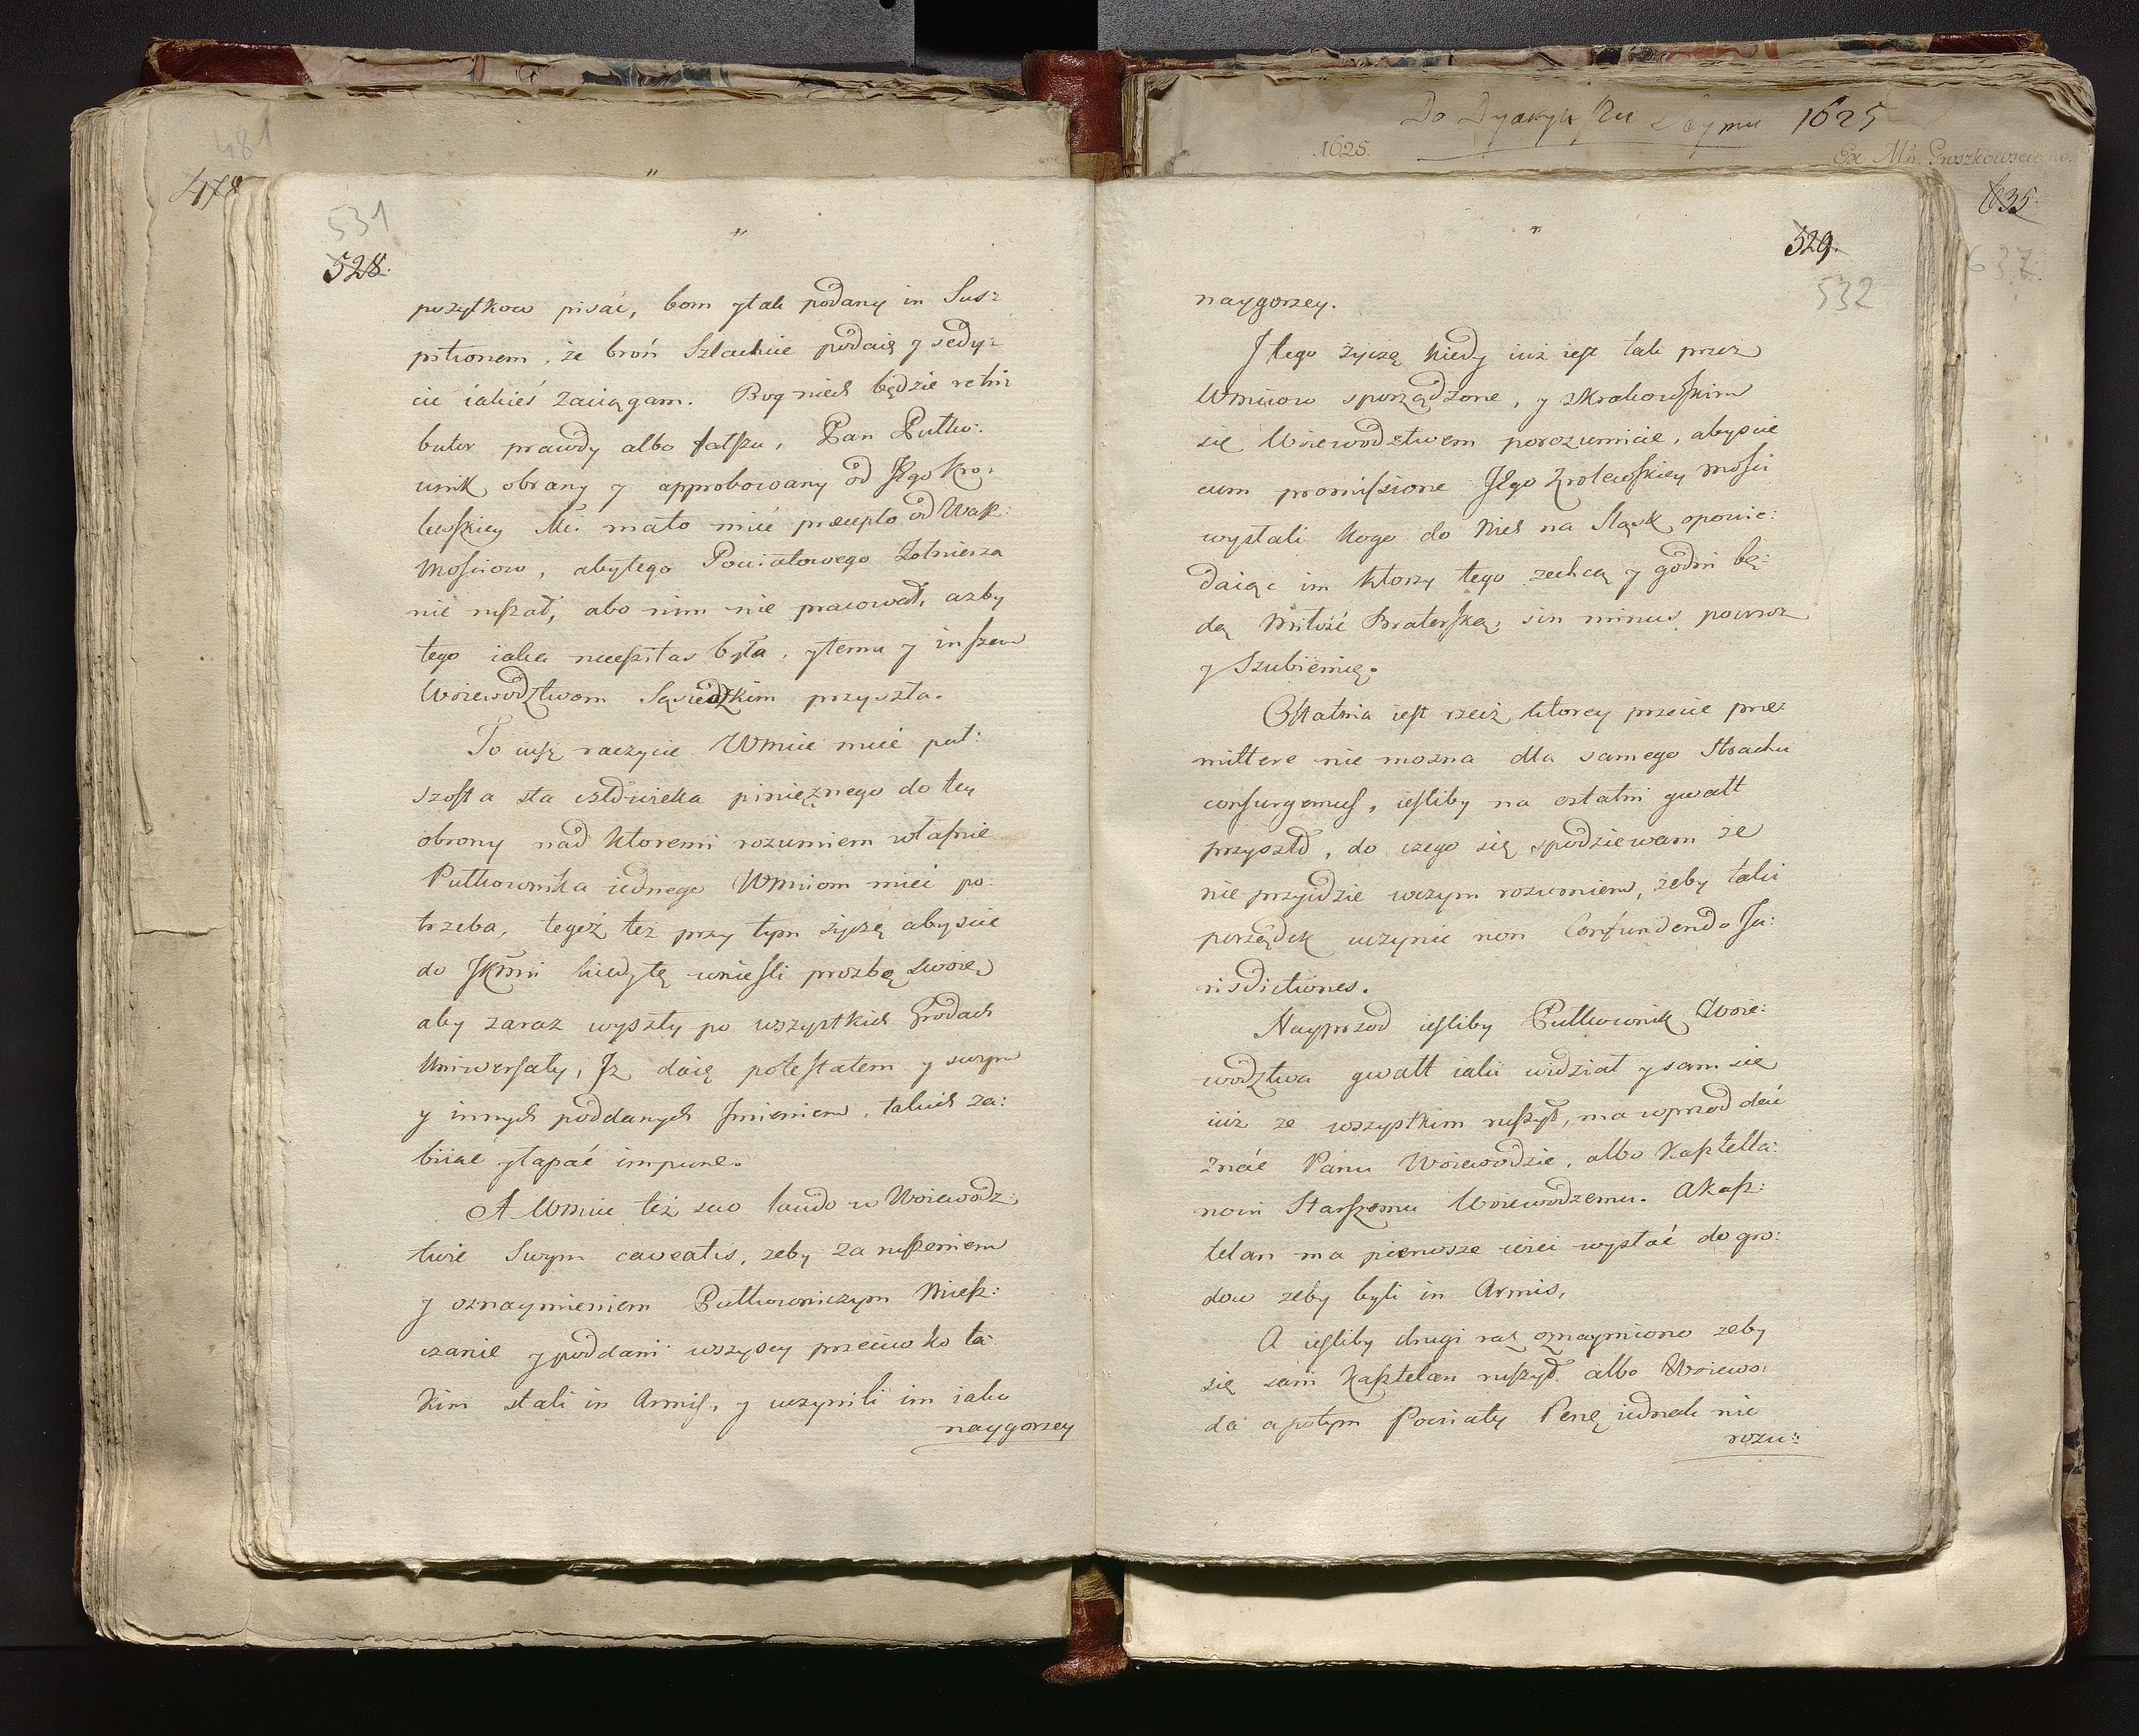 481
478
531
528.
pozytkow pisać, bom ytak podany in Sus:
pitionem, że broń Szlachcie podaię y sedy:
cie iakieś zaciągam. Bog niech będzie retri:
butor prawdy albo fałszu, Pan Pułko:
wnik obrany y approbowany od JKgo Kro:
lewskiey Mci. mało mieć precepto od Wasz:
Mościow, aby tego Powiatowego Żołnierza
nie ruszał, abo nim nie pracował, azby
tego iaka necessitas była, y temu y inszem
Woiewodztwom Sąsiedzkim przyszła.
To wsę raczycie Wmcie mieć puł:
szosta sta człowieka pinięznego do tey
obrony nad ktoremi rozumiem właśnie
Pułkownika iednego Wmciom mieć po:
trzeba, tegoż też przy tym życzę abyscie
do JKMci kiedy tę wnieśli prozbę swoię
aby zaraz wyszły po wszystkich Grodach
Uniwersały, Iz daię potestatem y swym
y innych poddanych Imieniem, takich za:
biiać y łapać impune.
A Wmcie też suo laudo w Woiewodz:
twie Swym caveatis, zeby za ruszeniem
y oznaymieniem Pułkowniczym Miesz:
czanie y poddani wszyscy przeciwko ta:
kim stali in Armis, y uczynili im iako
naygorzey
Do Dyaryuszu Seymu 1625
1625.
Ex Ms. Groszkowsciano.
635.
637.
529.
532
naygorzey.
I tego życzę kiedy iuż iest tak przez
Wmciow sporządzone, y z Krakowskim
się Woiewodztwem porozumicie, abyscie
cum promissione JKgo Krolewskiey Mości
wysłali kogo do Nich na Sląsk, opowie:
daiąc im ktorzy tego zechcą y godni bę:
dą Miłość Braterską, sin minus powroz
y Szubienicę.
Ostatnia iest rzecz ktorey przecie prae:
mittere nie mozna dla samego Strachu
consurgemus, iesliby na ostatni gwałt
przyszło, do czego się spodziewam że
nie przyidzie wczym rozumiem, żeby taki
porządek uczynić non Confundendo Ju:
risdictiones.
Nayprzod iesliby Pułkownik Woie:
wodztwa gwałt iaki widział y sam się
iuż ze wszystkim ruszył, ma wprzod dać
znać Panu Woiewodzie, albo Kasztella:
nowi Starszemu Woiewodzemu. A Kasz:
telan ma pierwsze wici wysłać do gro:
dow zeby byli in Armis,
A iesliby drugi raz oznaymiono zeby
się sam Kasztelan ruszył albo Woiewo:
da a potym Powiaty Penę iednak nie
rozu::